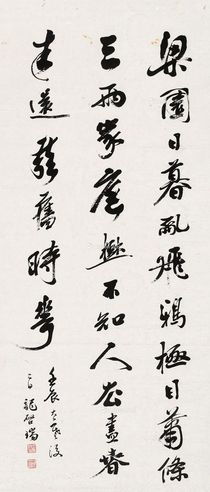 梁園日暮亂飛鴉極目蕭條
三兩家庭樹不知人去盡春
來還發舊時花
壬辰